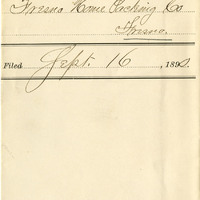 Fresno Home Packing Co
Fresno.
Filed Sept. 16, 1892.